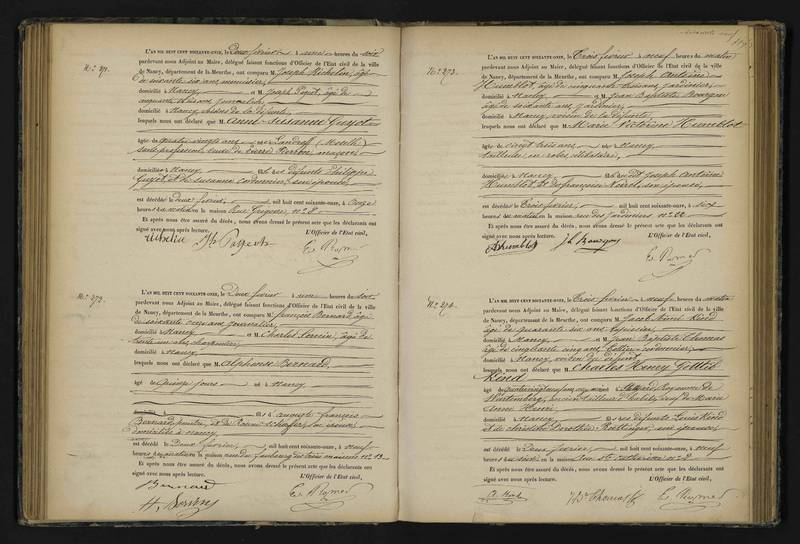 N.° 271.
L'AN MIL HUIT CENT SOIXANTE-ONZE, le Deux février à une heures du soir
pardevant nous Adjoint au Maire, délégué faisant fonctions d'Officier de l'Etat civil de la ville
de Nancy, département de la Meurthe, ont comparu M. Joseph Michelin, âgé
de soixante six ans menuisier,
domicilié à Nancy et M. Joseph âgé de
cinquante trois ans journalier
domicilié à Nancy voisins de la défunte,
lesquels nous ont déclaré que M. Anne Suzanne Guyot
âgée de quatre vingts ans née à Landres (Moselle)
sans profession, veuve de Pierre Perron, maçon,
domiciliée à Nancy fille de défunts Philippe
Guyot et de Suzanne Cordonnier, son épouse,
est décédée deux février, mil huit cent soixante-onze, à onze
heures du matin en la maison Rue Grégoire n.° 8
Et après nous être assuré du décès, nous avons dressé le présent acte que les déclarants ont
signé avec nous après lecture. L'Officier de l'Etat civil,
N.° 272.
L'AN MIL HUIT CENT SOIXANTE-ONZE, le Deux février à une heures du soir
pardevant nous Adjoint au Maire, délégué faisant fonctions d'Officier de l'Etat civil de la ville
de Nancy, département de la Meurthe, ont comparu M. François Bernard, âgé
de soixante cinq ans journalier
domicilié à Nancy et M. Charles âgé de
trente un ans, charpentier,
domicilié à Nancy
lesquels nous ont déclaré que M. Alphonse Bernard,
âgé de quinze jours né à Nancy
domicilié à fils d'Auguste François
Bernard, peintre, et de son épouse
domiciliés à Nancy
est décédé le Deux février, mil huit cent soixante-onze, à neuf
heures en la maison rue du faubourg des trois maisons n.° 13
Et après nous être assuré du décès, nous avons dressé le présent acte que les déclarants ont
signé avec nous après lecture. L'Officier de l'Etat civil,
Bernard
N.° 273.
L'AN MIL HUIT CENT SOIXANTE-ONZE, le Trois février à neuf heures du matin
pardevant nous Adjoint au Maire, délégué faisant fonctions d'Officier de l'Etat civil de la ville
de Nancy, département de la Meurthe, ont comparu M. Joseph Antoine
Humblot, âgé de cinquante trois ans, jardinier,
domicilié à Nancy et M. Jean Baptiste Bourgon
âgé de soixante ans, jardinier,
domicilié à Nancy, voisin de la défunte
lesquels nous ont déclaré que M. Marie Victorine Humblot
âgée de vingt trois ans, née à Nancy
tailleuse en robes, célibataire,
domiciliée à Nancy fille de Joseph Antoine
Humblot, et de Françoise son épouse,
est décédée le Trois février, mil huit cent soixante-onze, à six
heures du matin en la maison rue des jardiniers n.° 22
Et après nous être assuré du décès, nous avons dressé le présent acte que les déclarants ont
signé avec nous après lecture. L'Officier de l'Etat civil,
Humblot
N.° 274.
L'AN MIL HUIT CENT SOIXANTE-ONZE, le Trois février à neuf heures du matin
pardevant nous Adjoint au Maire, délégué faisant fonctions d'Officier de l'Etat civil de la ville
de Nancy, département de la Meurthe, ont comparu M. Jacob
âgé de quarante six ans, tapissier,
domicilié à Nancy, et M. Jean Baptiste Thomas
âgé de cinquante cinq ans, bottier cordonnier,
domicilié à Nancy, voisin du défunt
lesquels nous ont déclaré que M. Charles Henry
âgé né à Royaume de
Wurtemberg, veuf de Marie
Anne Henri,
domicilié à Nancy fils de défunts Louis
et de Christine Dorothée son épouse,
est décédé le Deux février, mil huit cent soixante-onze, à neuf
heures du soir en la maison Rue n.° 2
Et après nous être assuré du décès, nous avons dressé le présent acte que les déclarants ont
signé avec nous après lecture. L'Officier de l'Etat civil,
Thomas